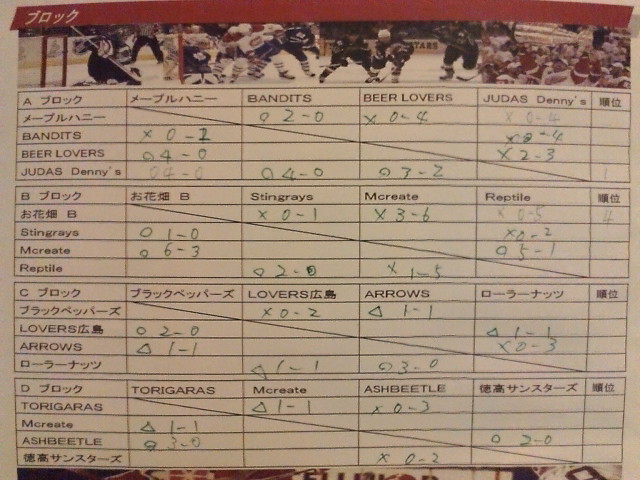 ブロック
A ブロック メープルハニー BANDITS BEER LOVERS JUDAS Denny's 順位
メープルハニー ○ 2-0 × 0-4 × 0-4
BANDITS × 0-2 × 0-4
BEER LOVERS ○ 4-0 × 2-3
JUDAS Denny's ○ 4-0 ○ 4-0 ○ 3-2 1
B ブロック お花畑 B Stingrays Mcreate Reptile 順位
お花畑 B × 0-1 × 3-6 × 0-5 4
Stingrays ○ 1-0 × 0-2
Mcreate ○ 6-3 ○ 5-1
Reptile ○ 2-0 × 1-5
C ブロック ブラックペッパーズ LOVERS広島 ARROWS ローラーナッツ 順位
ブラックペッパーズ × 0-2 △ 1-1
LOVERS広島 ○ 2-0 △ 1-1
ARROWS △ 1-1 × 0-3
ローラーナッツ △ 1-1 ○ 3-0
D ブロック TORIGARAS Mcreate ASHBEETLE 徳高サンスターズ 順位
TORIGARAS △ 1-1 × 0-3
Mcreate △ 1-1
ASHBEETLE ○ 3-0 ○ 2-0
徳高サンスターズ × 0-2